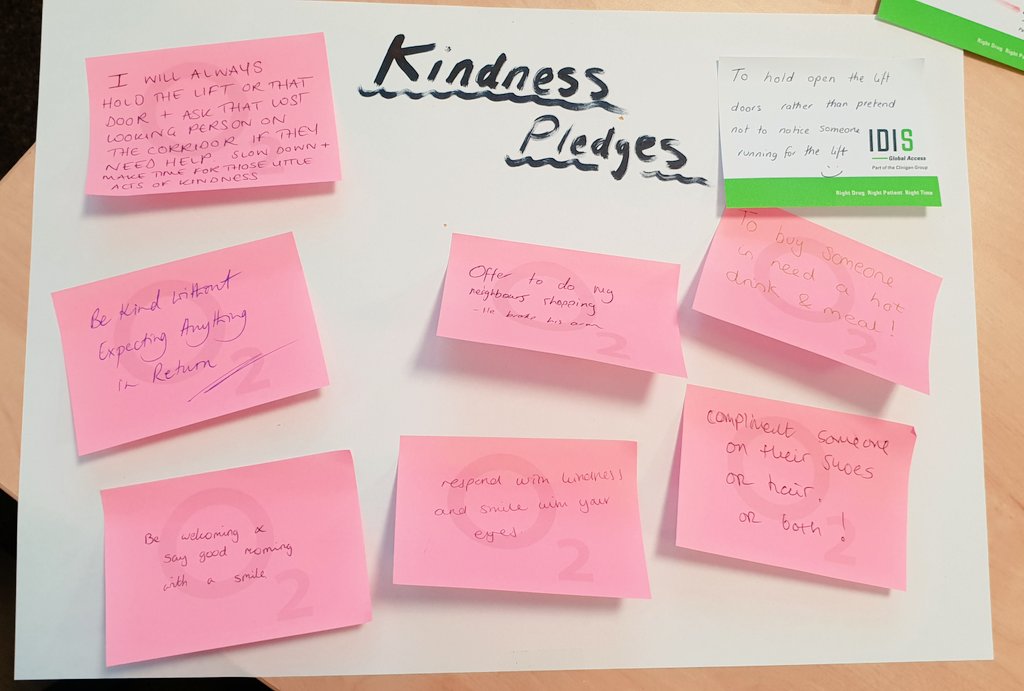 Kindness
Pledges
I WILL ALWAYS
HOLD THE LIFT OR THAT
DOOR + ASK THAT LOST
LOOKING PERSON ON
THE CORRIDOR IF THEY
NEED HELP SLOW DOWN +
MAKE TIME FOR THOSE LITTLE
ACTS OF KINDNESS
To hold open the lift
doors rather than pretend
not to notice someone
running for the lift
IDIS
Global Access
Part of the Clinigen Group
Right Drug Right Patient Right Time
Be Kind without
Expecting Anything
in Return
2
Offer to do my
neighbours shopping
- He broke his arm
2
To buy someone
in need a hot
drink & meal!
2
Be welcoming &
say good morning
with a smile
2
respond with kindness
and smile with your
eyes.
2
compliment someone
on their shoes
OR hair.
OR both!
2
Right Drug Right